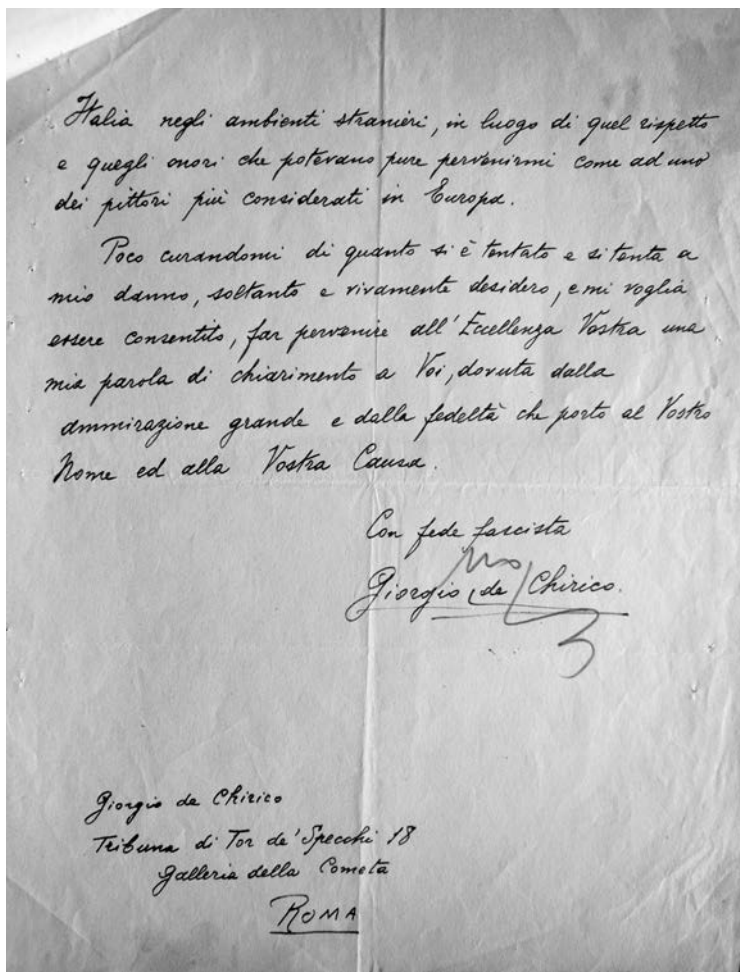 Italia negli ambienti stranieri, in luogo di quel rispetto
e quegli onori che potevano pure pervenirmi come ad uno
dei pittori più considerati in Europa.
Poco curandomi di quanto si è tentato e si tenta a
mio danno, soltanto e vivamente desidero, e mi voglia
essere consentito, far pervenire all'Eccellenza Vostra una
mia parola di chiarimento a Voi, dovuta dalla
ammirazione grande e dalla fedeltà che porto al Vostro
Nome ed alla Vostra Causa.
Con fede fascista
Giorgio de Chirico.
Giorgio de Chirico
Tribuna di Tor de' Specchi 18
Galleria della Cometa
ROMA